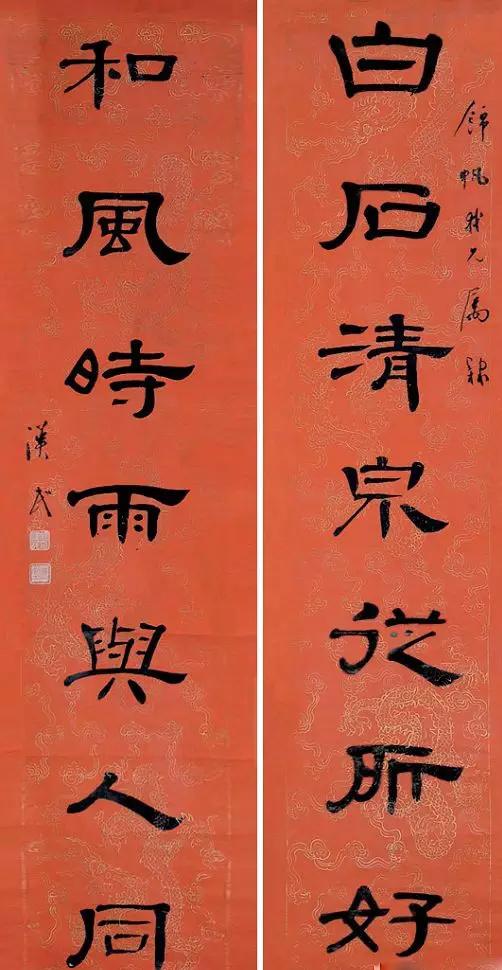 錦帆我兄属隸
白石清泉從所好
和風時雨與人同
漢民